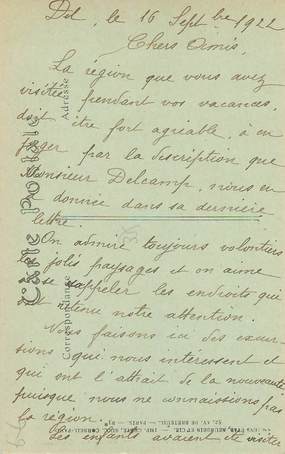 Dol, le 16 Septbre 1922
Chers Amis,
La région que vous avez
visitée pendant vos vacances,
doit être fort agréable, à en
juger par la description que
Monsieur Delcamp, nous en
donne dans sa dernière
lettre.
On admire toujours volontiers
les jolis paysages et on aime
à se rappeler les endroits qui
ont retenu notre attention.
Nous faisons ici des excur-
sions qui nous intéressent et
qui ont l'attrait de la nouveauté
puisque nous ne connaissions pas
la région.
Les enfants avaient été visiter
Carte Postale
Correspondance
Adresse